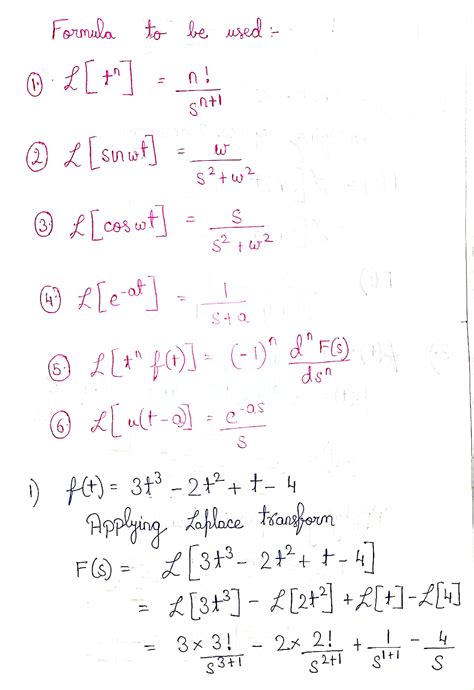 Formula to be used :-
① L[tⁿ] = n! / sⁿ⁺¹
② L[sin wt] = w / s² + w²
③ L[cos wt] = s / s² + w²
④ L[e⁻ᵃᵗ] = 1 / s+a
⑤ L[tⁿ f(t)] = (-1)ⁿ dⁿ F(s) / dsⁿ
⑥ L[u(t-a)] = e⁻ᵃˢ / s
1) f(t) = 3t³ - 2t² + t - 4
Applying Laplace transform
F(s) = L[3t³ - 2t² + t - 4]
= L[3t³] - L[2t²] + L[t] - L[4]
= 3 × 3! / s³⁺¹ - 2 × 2! / s²⁺¹ + 1 / s¹⁺¹ - 4 / s